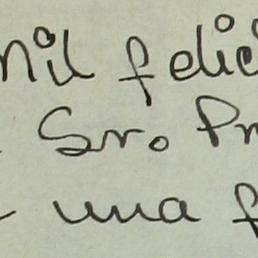 mil felic
Sr. Pr
una f